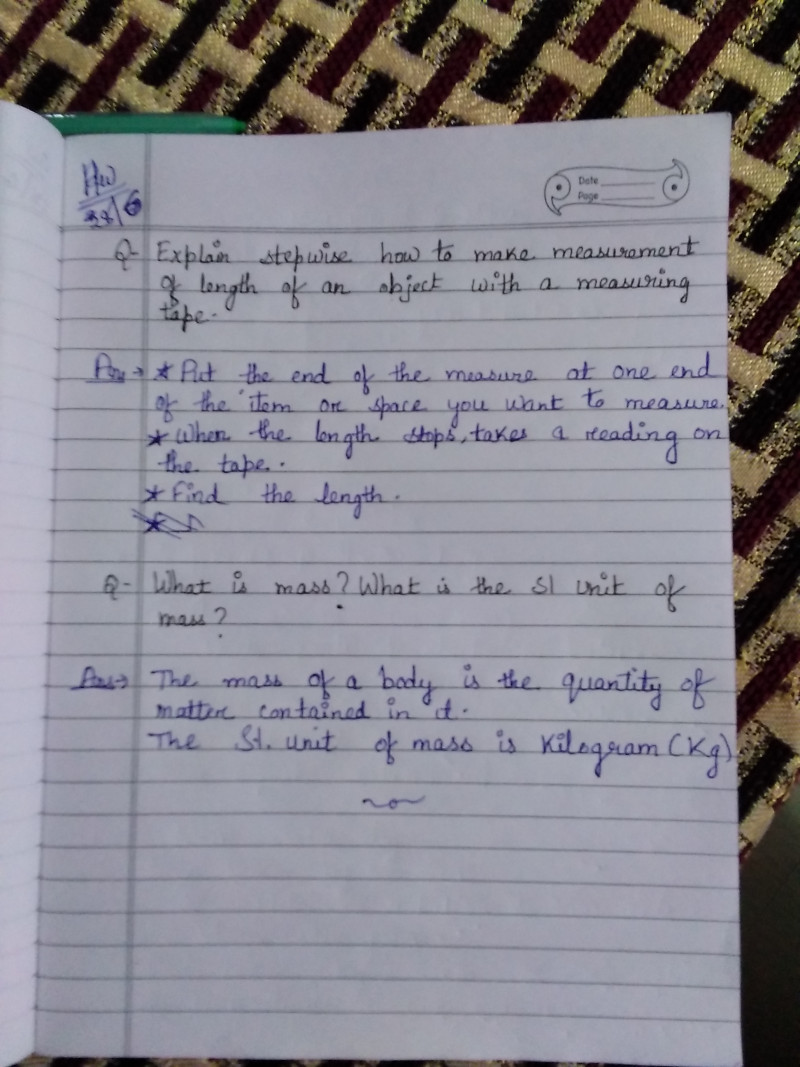 HW
28/6
Date
Page
Q- Explain stepwise how to make measurement
of length of an object with a measuring
tape.
Ans→ * Put the end of the measure at one end
of the item or space you want to measure.
* When the length stops, takes a reading on
the tape.
* Find the length.
Q- What is mass? What is the SI unit of
mass?
Ans→ The mass of a body is the quantity of
matter contained in it.
The SI. unit of mass is Kilogram (Kg)